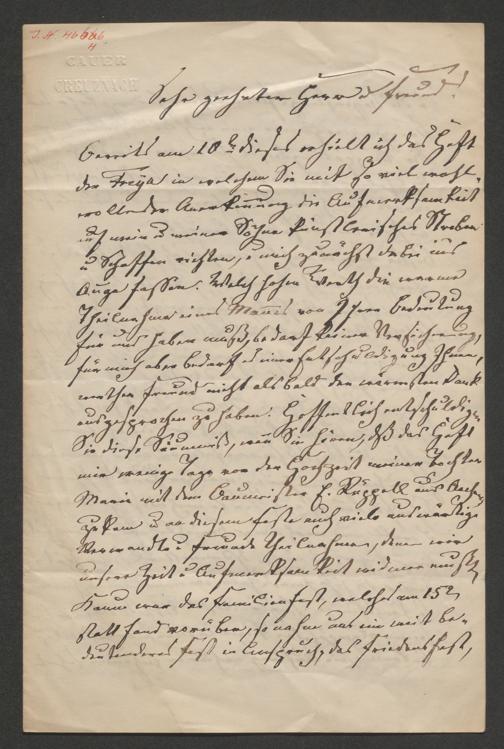 J. N. 46646
CAUER
CREUZNACH
Sehr geehrter Herr u Freund!
Bereits am 10t dieses erhielt ich das Heft
der Freya in welchem Sie mit so viel wohl-
wollender Anerkennung die Aufmerksamkeit
auf mein u meiner Söhne künstlerisches Streben
u Schaffen richten, u mich zunächst dabei ins
Auge fassen. Welch hohen Werth die warme
Theilnahme eines Mannes von Ihrer Bedeutung
für uns haben muß, bedarf keiner Versicherung,
für mich aber bedarf es einer Entschuldigung Ihnen,
werther Freund nicht alsbald den wärmsten Dank
ausgesprochen zu haben. Hoffentlich entschuldigen
Sie diese Säumniß, wenn Sie hören, daß das Heft
mir wenige Tage vor der Hochzeit meiner Tochter
Maria mit dem Baumeister E. Rüppell aus Aachen
zukam u an diesem Feste auch viele auswärtige
Verwandte u Freunde Theilnahmen, denen wir
unsere Zeit u Aufmerksamkeit widmen mußten
Kaum war das Familienfest, welches am 15t
statt fand vorüber, so nahm uns ein weit be-
deutenderes Fest in Anspruch, das Friedensfest,